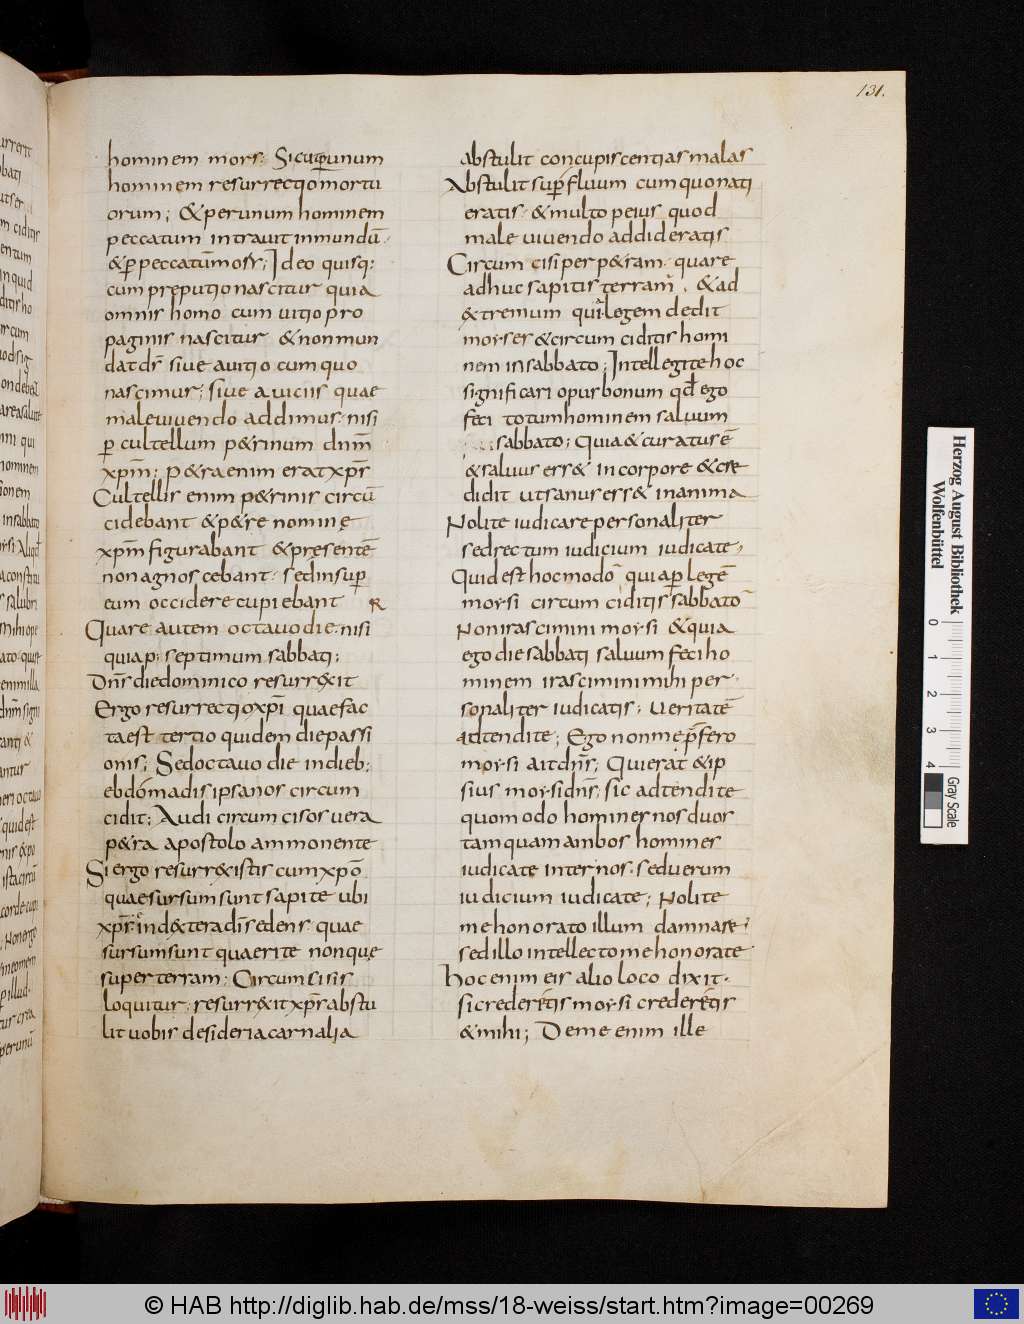 131.
hominem mors. Sicut p unum
hominem resurrectio mortu
orum; & per unum hominem
peccatum intrauit in mundū.
& p peccatum mors; Ideo quisq:
cum preputio nascitur quia
omnis homo cum uitio pro
paginis nascitur & non mun
datur siue a uitio cum quo
nascimur; siue a uiciis quae
male uiuendo addimus. nisi
p cultellum p&rinum dnm̄
xpm̄; p&ra enim erat xpr̄
Cultellis enim p&rinis circū
cidebant & p&re nomine
xpm̄ figurabant & presentē
non agnoscebant. sed insup
eum occidere cupiebant R
Quare autem octauo die. nisi
quia p; septimum sabbati;
Dnr̄ die dominico resurrexit
Ergo resurrectio xpi quae fac
ta est tertio quidem die passi
onis; Sed octauo die in dieb;
ebdomadis ipsa nos circum
cidit; Audi circumcisos uera
p&ra apostolo ammonente
Si ergo resurrexistis cum xpō
quae sursum sunt sapite ubi
xpr̄ in dextera dī sedens. quae
sursum sunt quaerite non quę
super terram; Circumsisis
loquitur. resurrexit xpr̄ abstu
lit uobis desideria carnalia
abstulit concupiscentias malas
Abstulit supfluum cum quo nati
eratis. & multo peius quod
male uiuendo addideratis
Circumcisi per p&ram. quare
adhuc sapitis terram. & ad
&tremum quia legem dedit
moyses & circumciditis homi
nem in sabbato; Intellegite hoc
significari opus bonum qd ego
feci totum hominem saluum
sabbato; Quia & curatus ē
& saluus ess& in corpore & cre
didit ut sanus ess& in anima
Nolite iudicare personaliter
sed rectum iudicium iudicate;
Quid est hoc modo quia p legē
moysi circumciditis sabbato
Non irascimini moysi & quia
ego die sabbati saluum feci ho
minem irascimini mihi per
sonaliter iudicatis; Ueritatē
adtendite; Ego non me pfero
moysi ait dnr̄; Qui erat & ip
sius moysi dnr̄; sic adtendite
quomodo homines nos duos
tamquam ambos homines
iudicate inter nos. sed uerum
iudicium iudicate; Nolite
me honorato illum damnare;
sed illo intellecto me honorate
Hoc enim eis alio loco dixit.
si crederetis moysi crederetis
& mihi; De me enim ille
Herzog August Bibliothek
Wolfenbüttel
0 1 2 3 4
Gray Scale
© HAB http://diglib.hab.de/mss/18-weiss/start.htm?image=00269